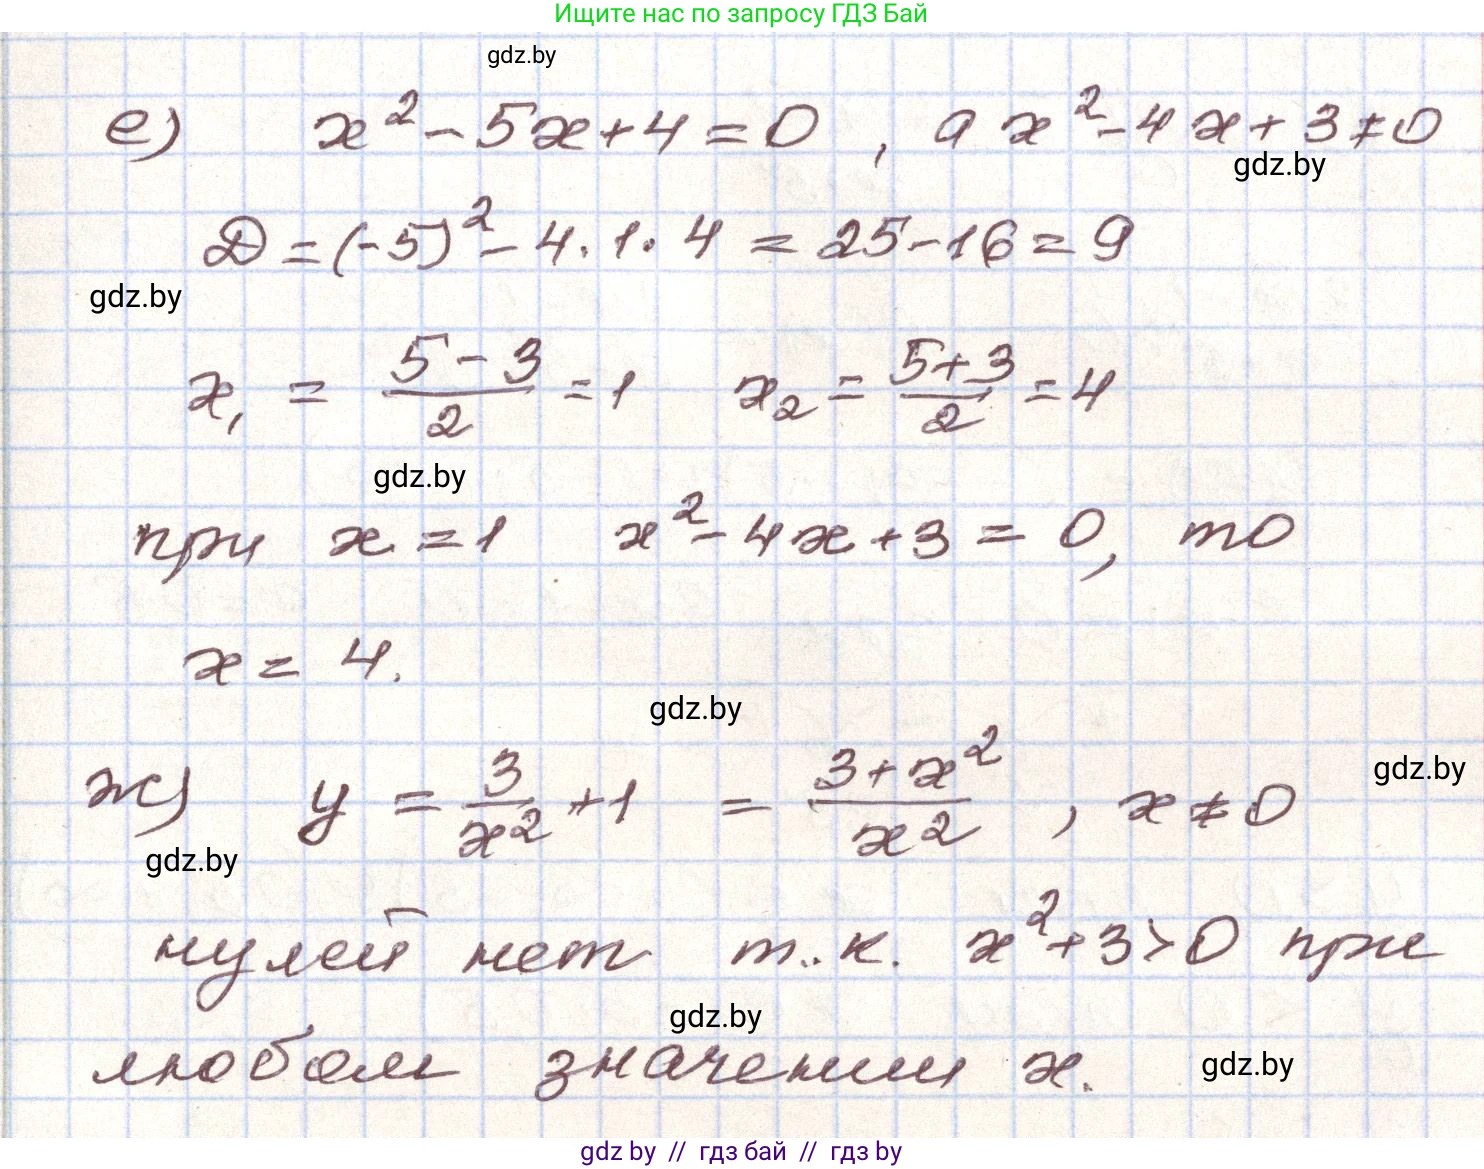 Ищите нас по запросу ГДЗ Бай
gdz.by
е) x² - 5x + 4 = 0 , а x² - 4x + 3 ≠ 0
gdz.by
D = (-5)² - 4 · 1 · 4 = 25 - 16 = 9
gdz.by
x₁ = (5 - 3)/2 = 1 x₂ = (5 + 3)/2 = 4
gdz.by
при x = 1 x² - 4x + 3 = 0, то
x = 4.
gdz.by
ж) y = 3/x² + 1 = (3 + x²)/x² , x ≠ 0
gdz.by
gdz.by
нулей нет т.к. x² + 3 > 0 при
gdz.by
любом значении x.
gdz.by
gdz.by // гдз бай // гдз by